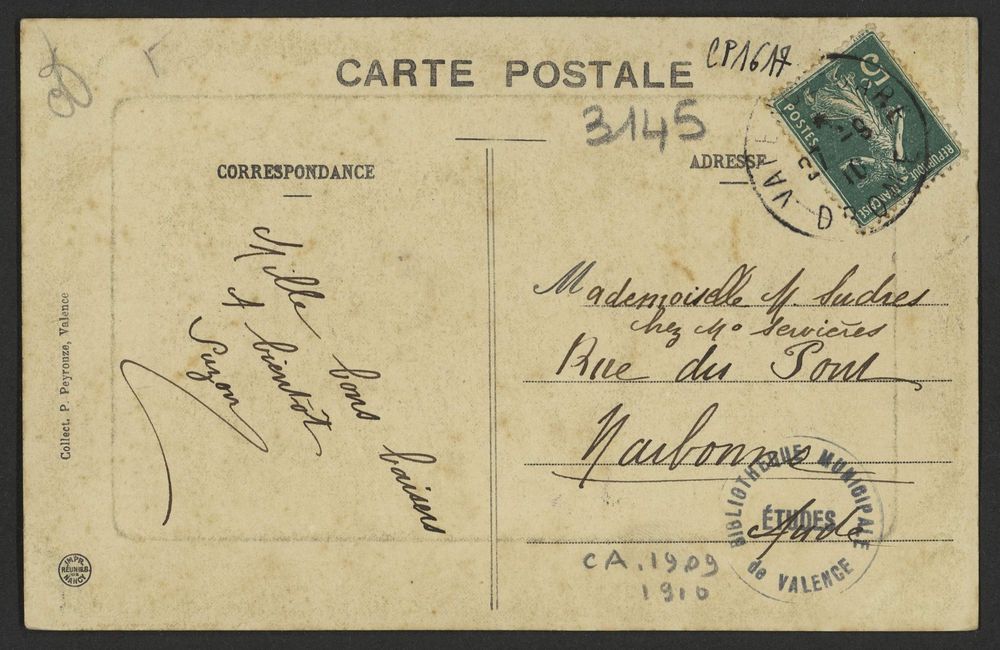 CARTE POSTALE
CP1617
3145
CORRESPONDANCE
ADRESSE
POSTES
REPUBLIQUE FRANÇAISE
GARE
DROME
10
Mille bons baisers
A bientôt
Suzon
Mademoiselle M Sudres
chez Me Servières
Rue du Pont
Narbonne
Aude
BIBLIOTHEQUE MUNICIPALE
ÉTUDES
de VALENCE
CA. 1909
1910
Collect. P. Peyrouze, Valence
IMPR.
RÉUNIES
NANCY